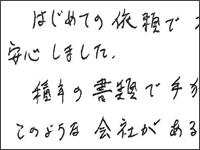 はじめての依頼で
安心しました。
積年の書類で手
このような会社がある